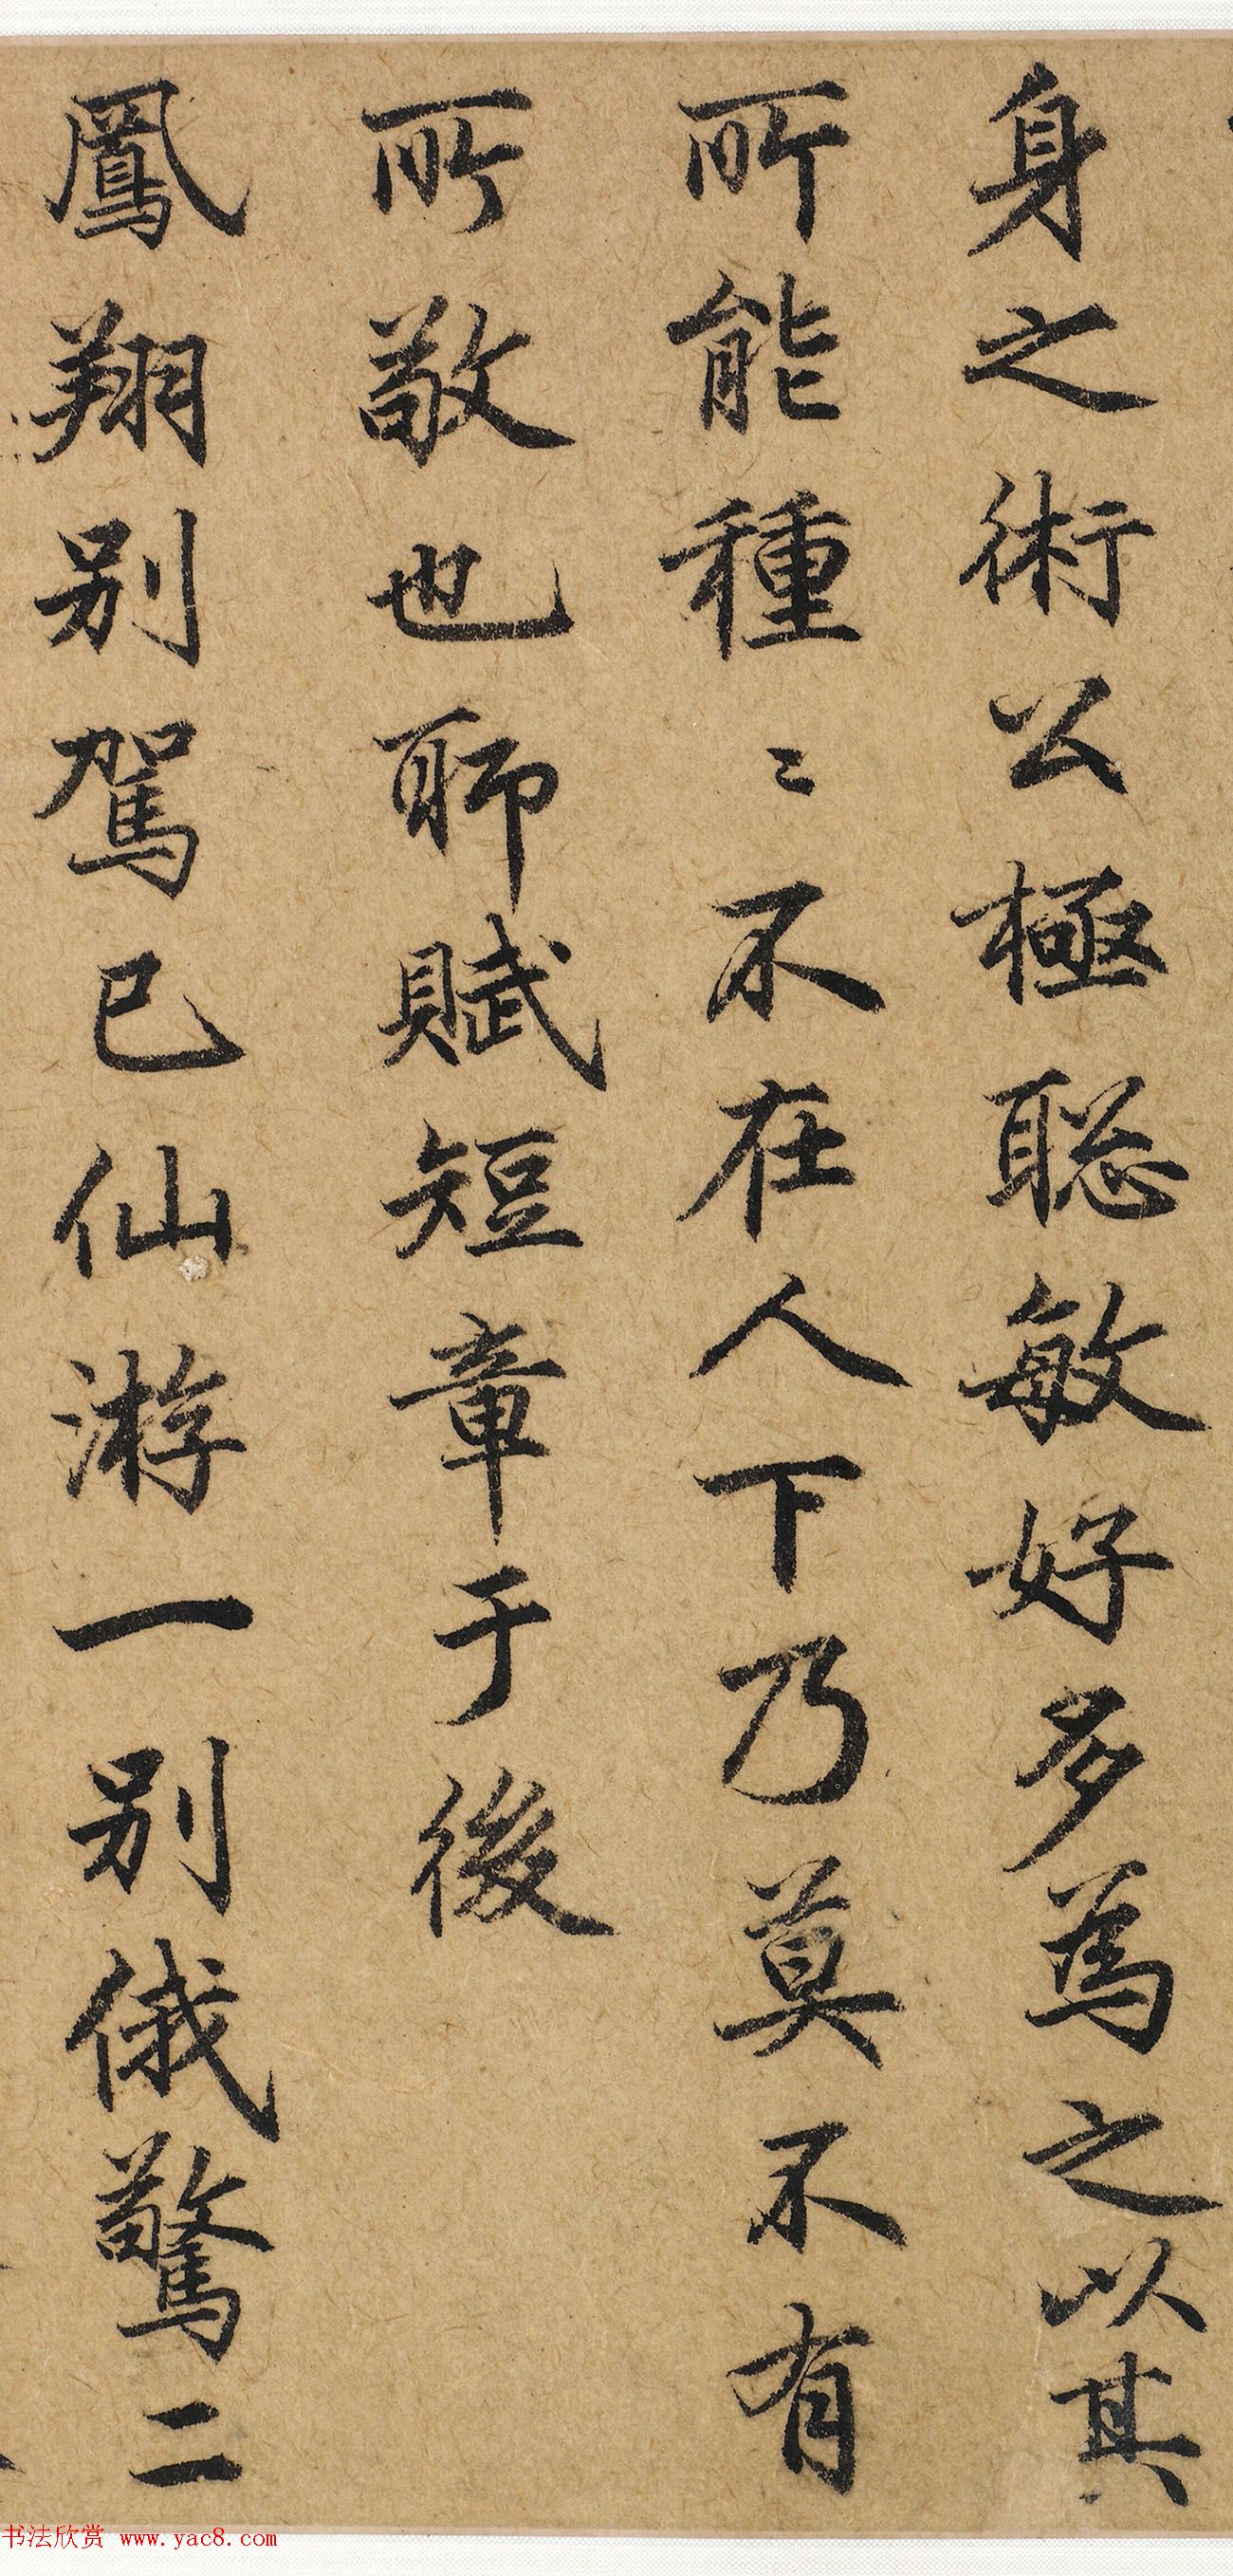 身之術公極聡敏好多為之以其
所能種〻不在人下乃莫不有
所敬也聊賦短章于後
鳳翔別駕已仙游一別俄驚二
书法欣赏 www.yac8.com